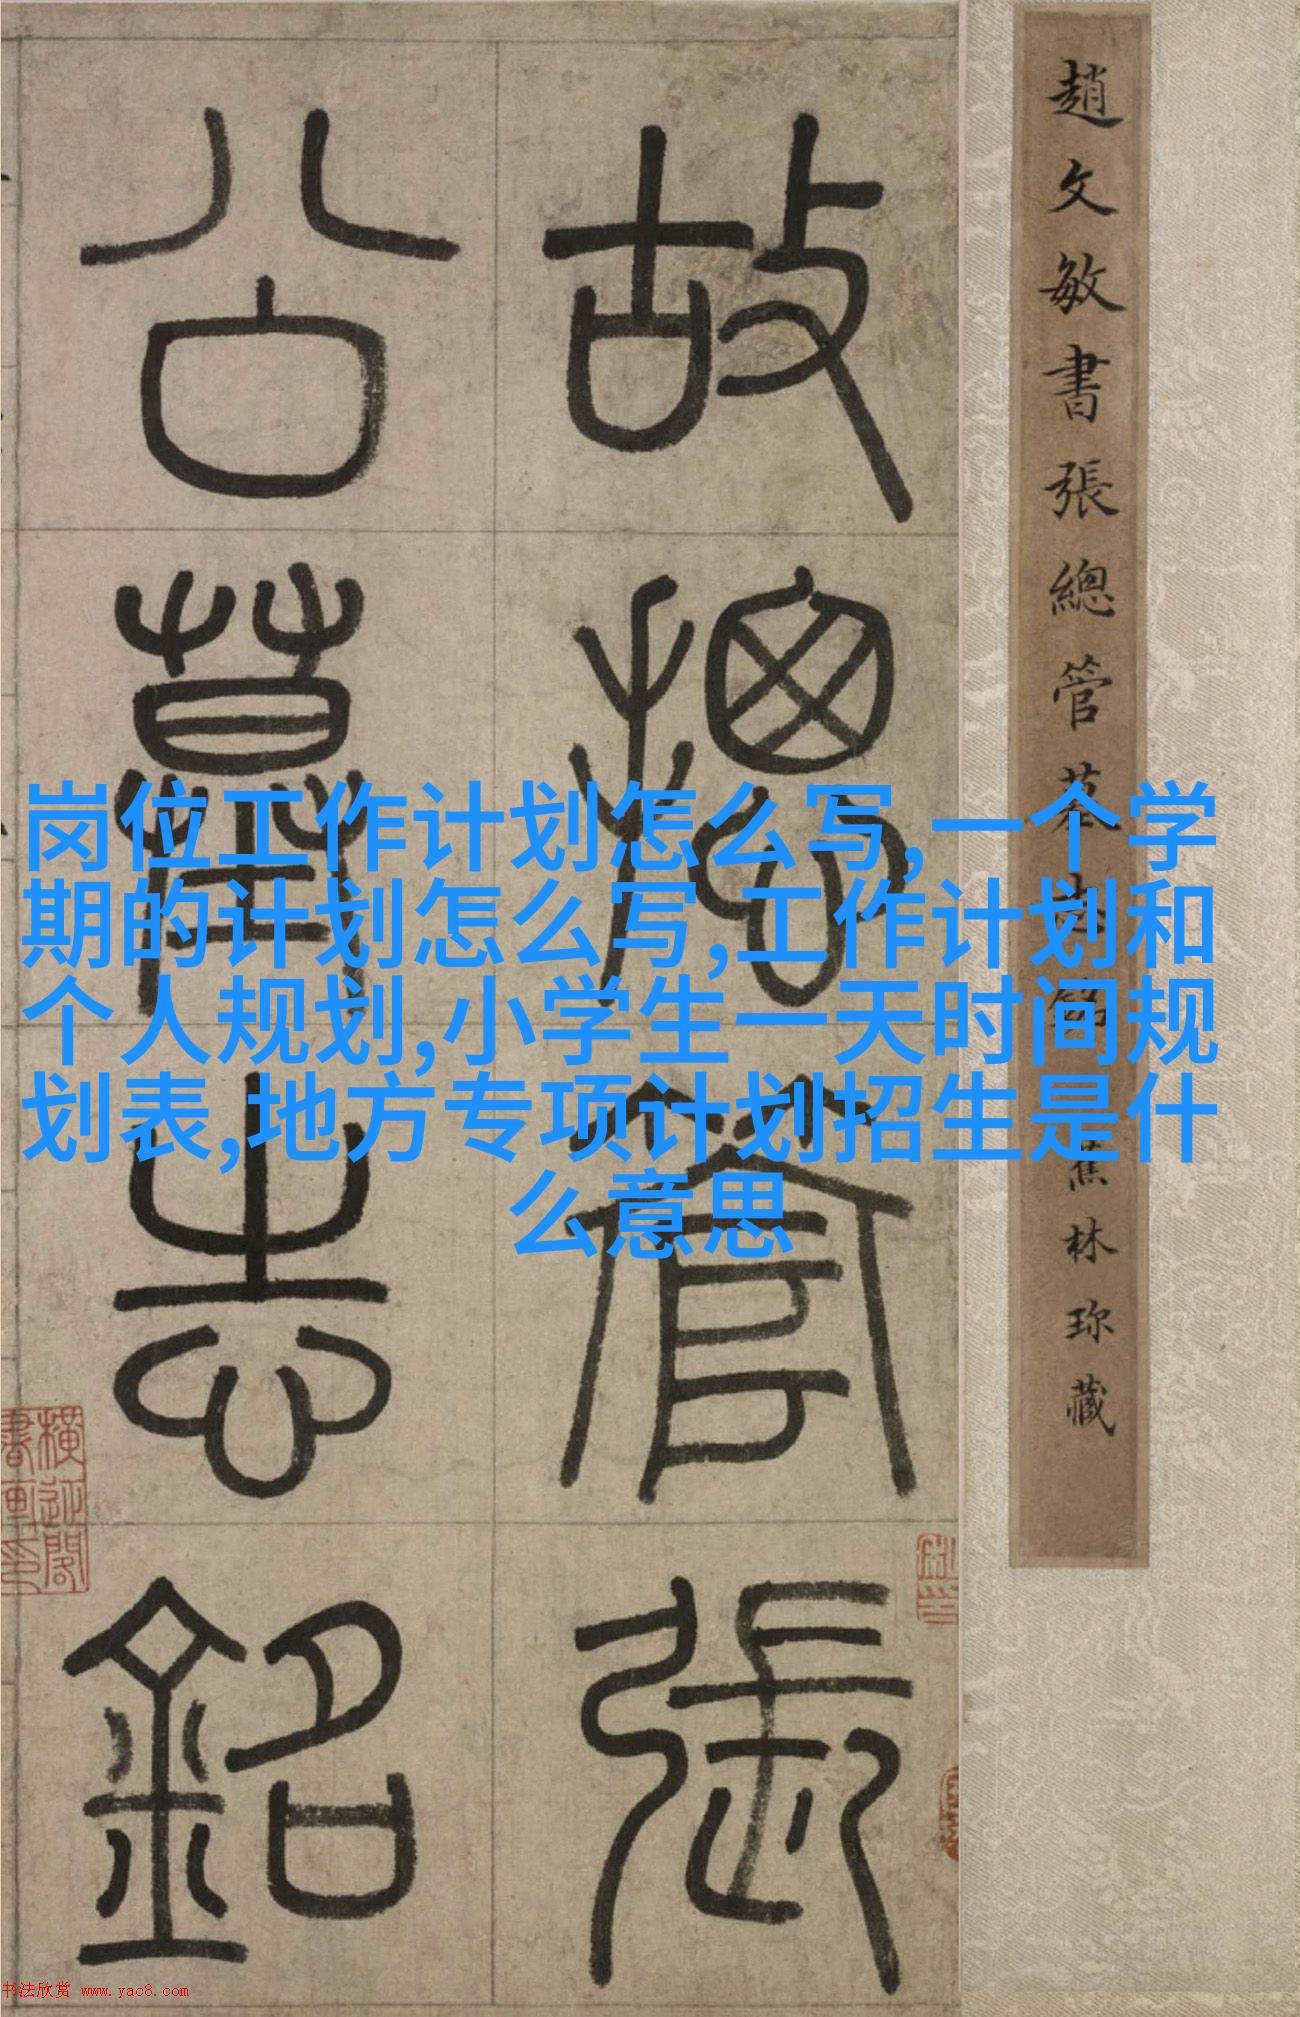 趙文敏書張總管墓志銘 蕉林珎藏
故總管張
公墓志銘
岗位工作计划怎么写,一个学
期的计划怎么写,工作计划和
个人规划,小学生一天时间规
划表,地方专项计划招生是什
么意思
书法欣赏 www.yac8.com